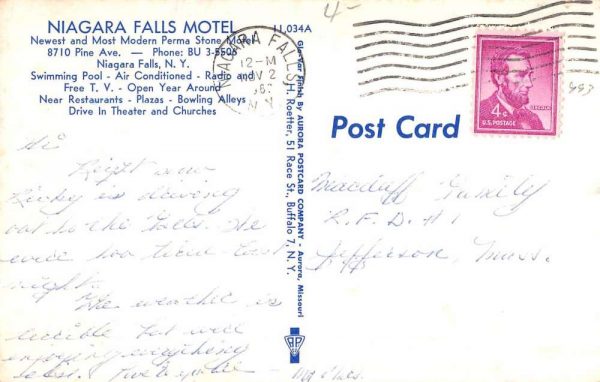 NIAGARA FALLS MOTEL
Newest and Most Modern Perma Stone Motel
8710 Pine Ave. — Phone: BU 3-5506
Niagara Falls, N. Y.
Swimming Pool - Air Conditioned - Radio and
Free T. V. - Open Year Around
Near Restaurants - Plazas - Bowling Alleys
Drive In Theater and Churches
11,034A
4-
NIAGARA FALLS
12-M
NOV 2
N.Y.
4¢
LINCOLN
U.S. POSTAGE
Post Card
Hi
Right now
Ricky is driving
out to the Falls. We
were too tired last
night.
The weather is
terrible but we're
enjoying everything
else.
Family
R.F.D. #1
Jefferson, Mass.
by AURORA POSTCARD COMPANY - Aurora, Missouri
H. Roetter, 51 Race St., Buffalo 7, N. Y.